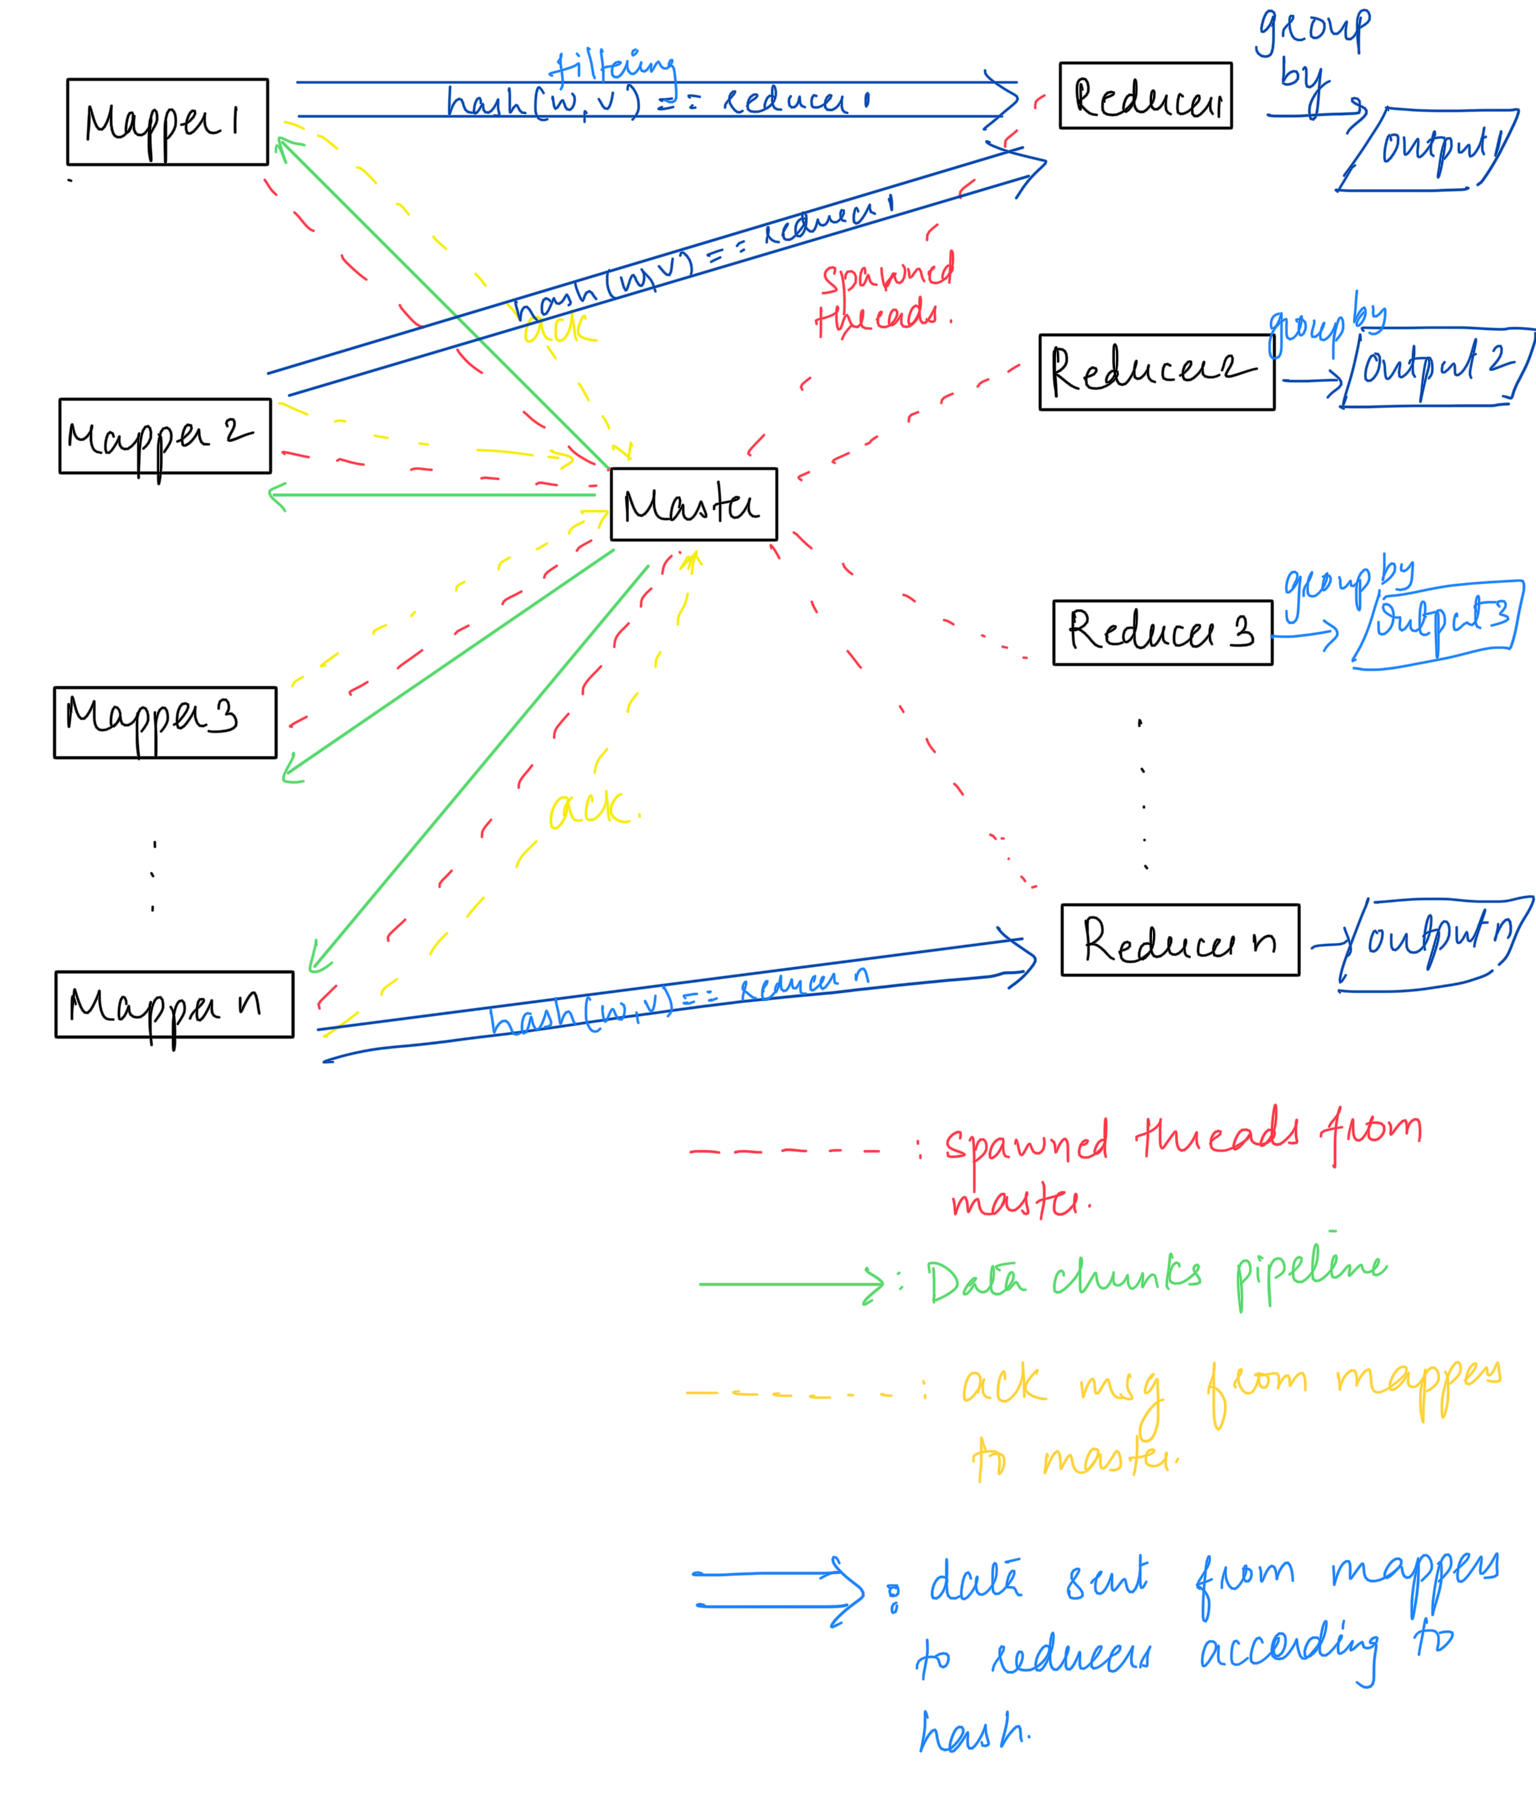 group
by
filtering
Mapper 1
hash(w,v) == reducer 1
Reducer 1
output 1
hash(w,v) == reducer 1
ack
spawned
threads.
group by
Reducer 2
output 2
Mapper 2
Master
group by
Reducer 3
output 3
Mapper 3
ack.
Mapper n
hash(w,v) == reducer n
Reducer n
output n
: spawned threads from
master.
: Data chunks pipeline
: ack msg from mappers
to master.
: data sent from mappers
to reducers according to
hash.